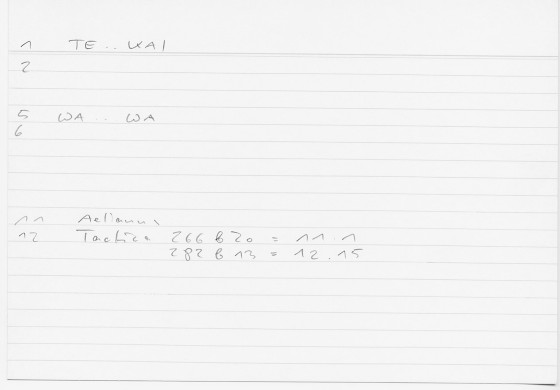 1 TE .. KAI
2
5 WA .. WA
6
11 Aelianus
12 Tactica 266 B 20 = 11 1
282 B 13 = 12.15